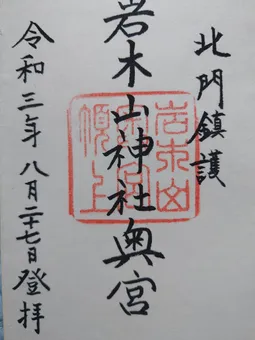 北門鎮護
岩木山神社奥宮
令和三年八月二十七日登拝
岩木山
頂上